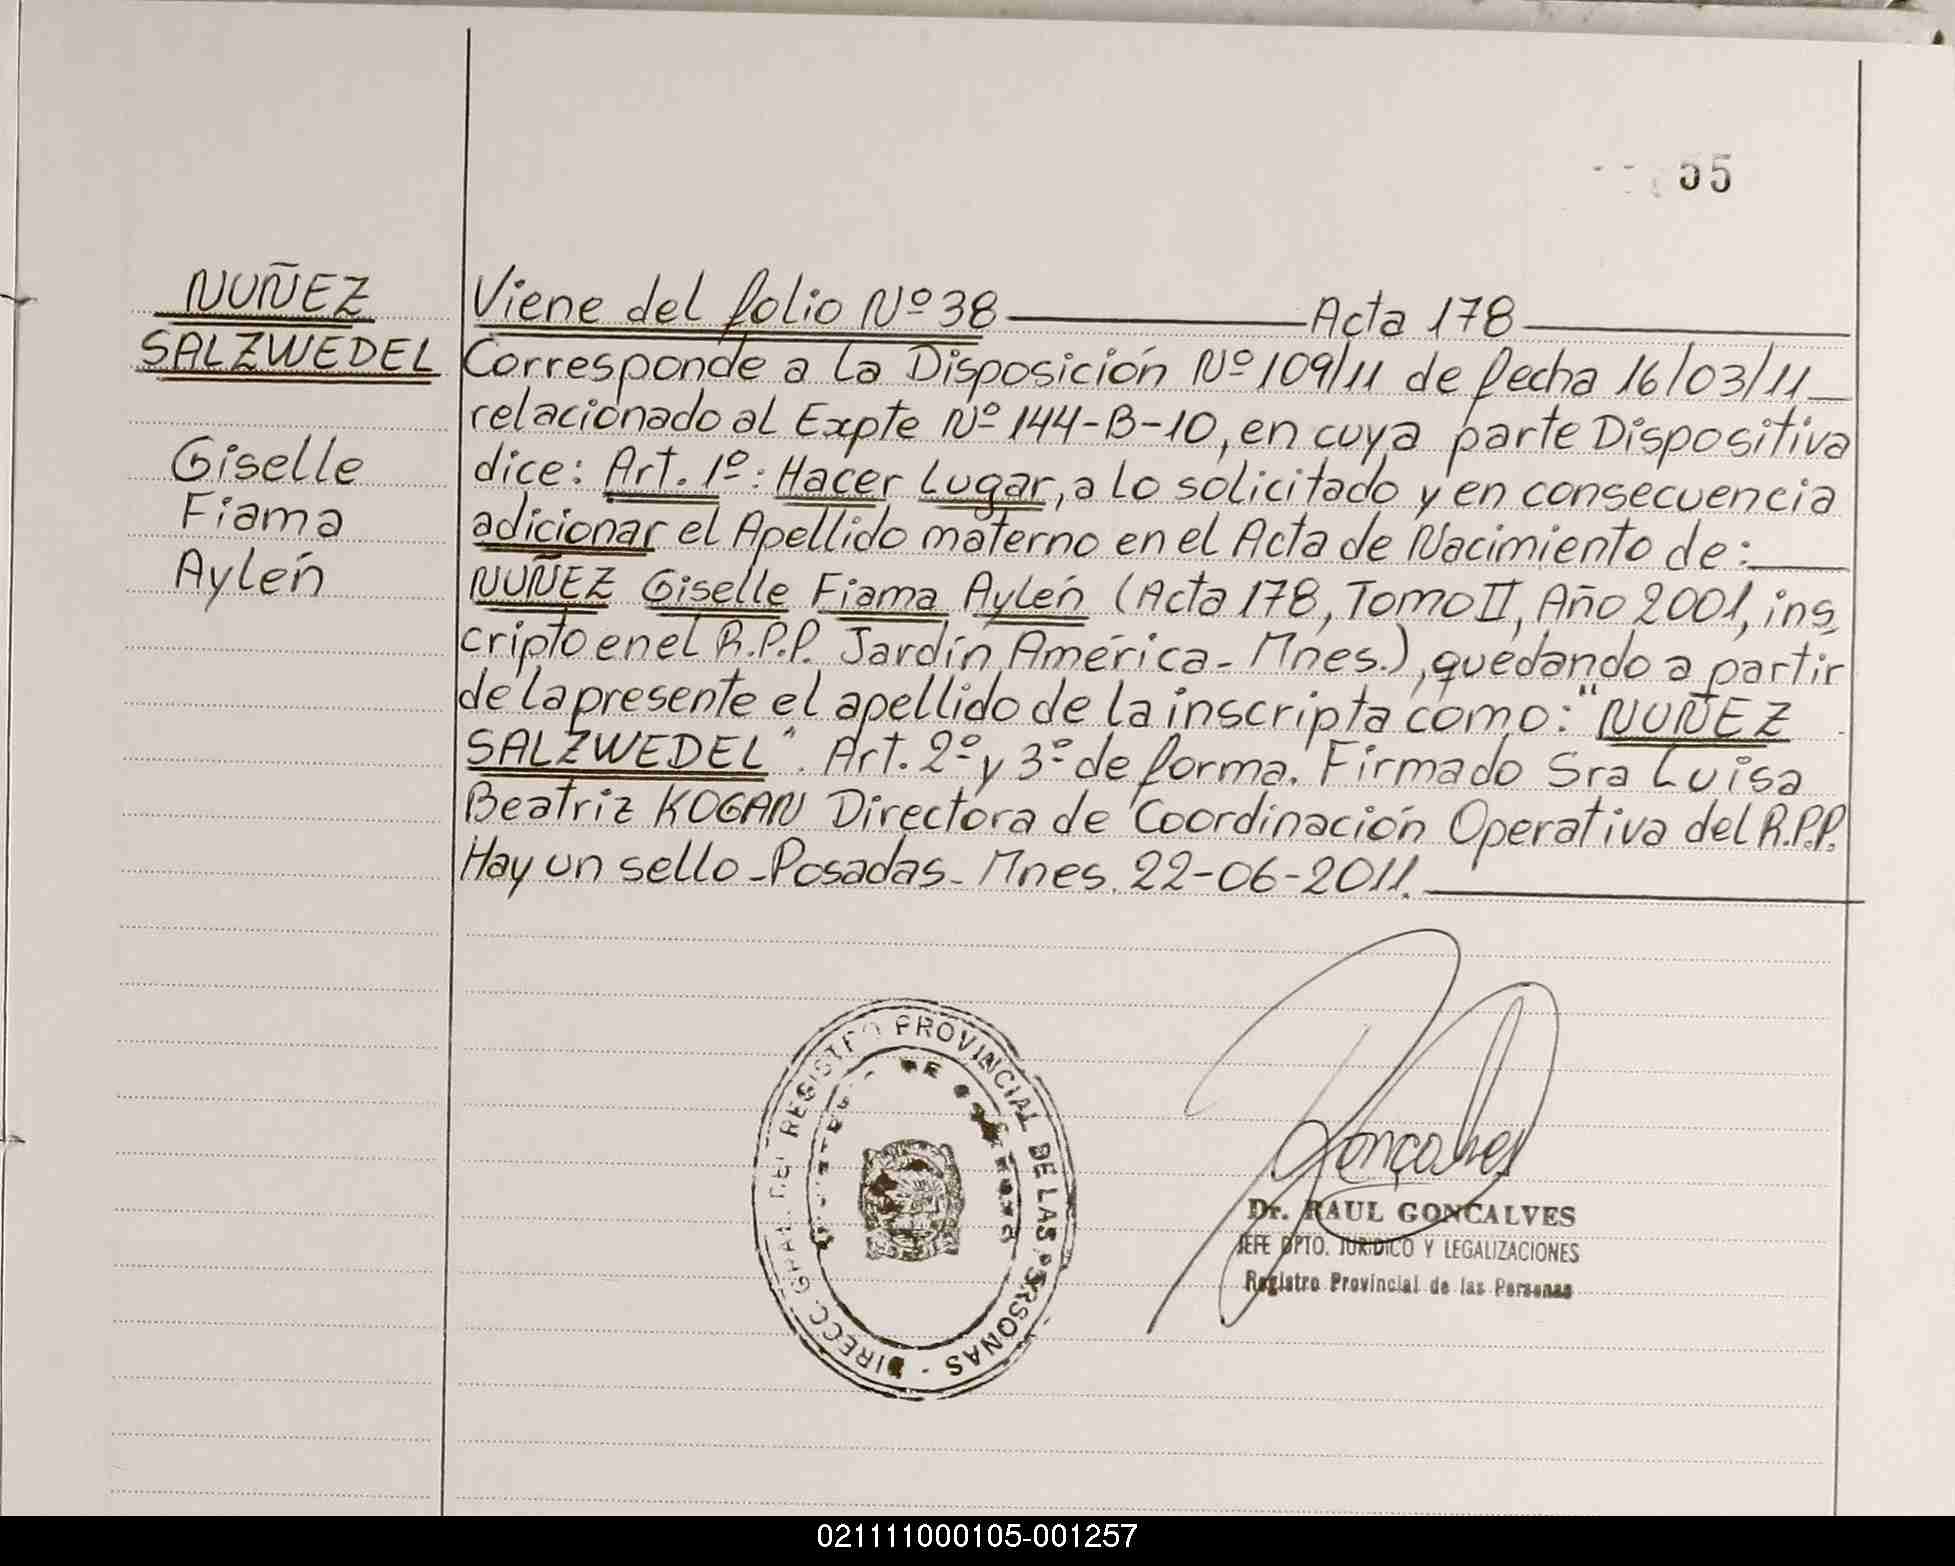 55
NUÑEZ
SALZWEDEL
Giselle
Fiama
Aylén
Viene del folio Nº 38 Acta 178
Corresponde a la Disposición Nº 109/11 de fecha 16/03/11
relacionado al Expte Nº 144-B-10, en cuya parte Dispositiva
dice: Art. 1º: Hacer Lugar, a lo solicitado y en consecuencia
adicionar el Apellido materno en el Acta de Nacimiento de:
NUÑEZ Giselle Fiama Aylén (Acta 178, Tomo II, Año 2001, ins
cripto en el R.P.P. Jardín América - Mnes.), quedando a partir
de la presente el apellido de la inscripta como: "NUÑEZ
SALZWEDEL". Art. 2º y 3º de forma. Firmado Sra Luisa
Beatriz KOGAN Directora de Coordinación Operativa del R.P.P.
Hay un sello - Posadas - Mnes. 22-06-2011.
DIRECC. GRAL. DEL REGISTRO PROVINCIAL DE LAS PERSONAS -
Gonçalves
Dr. RAUL GONCALVES
JEFE DPTO. JURIDICO Y LEGALIZACIONES
Registro Provincial de las Personas
021111000105-001257